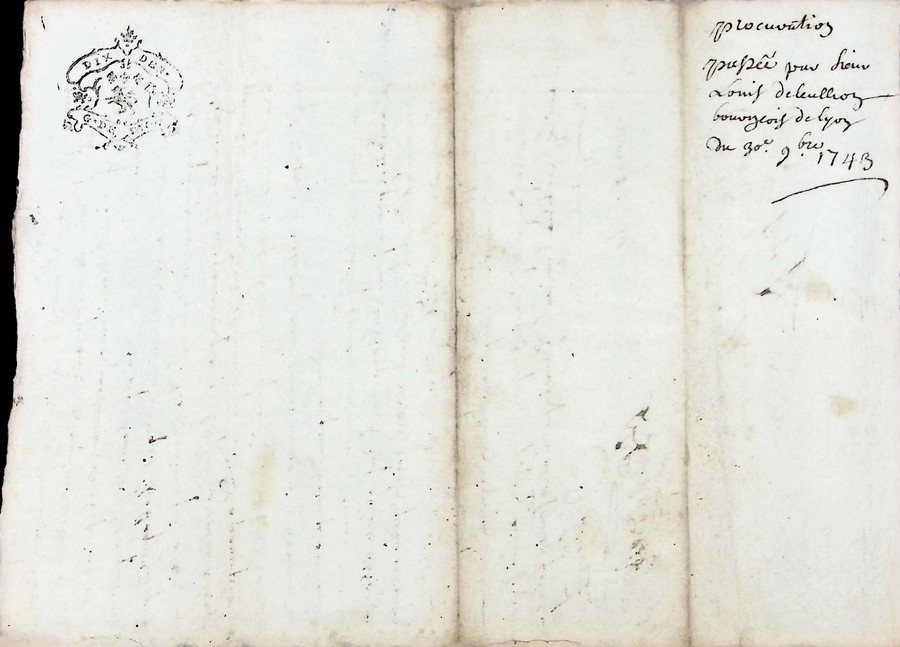 DIX DEN.
G. DE
procuration
passée par sieur
Louis deleullion
bourgeois de lyon
du 30e. 9bre 1743